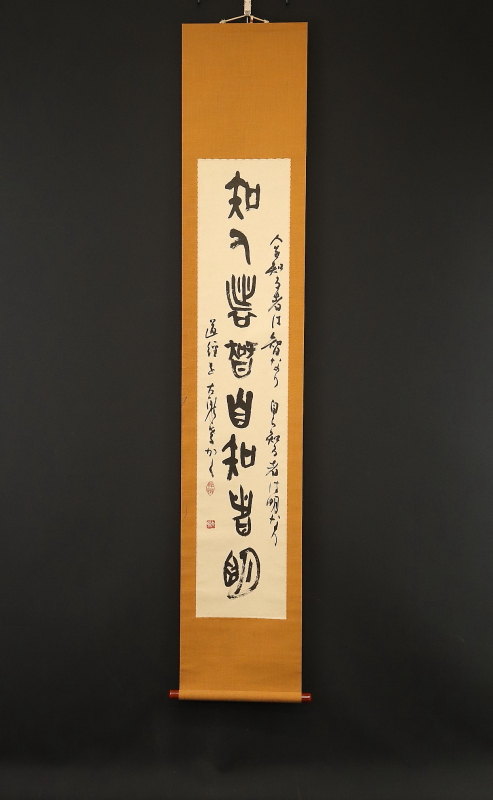 人を知る者は智なり 自ら知る者は明なり
知人者智自知者明
道経を
かく